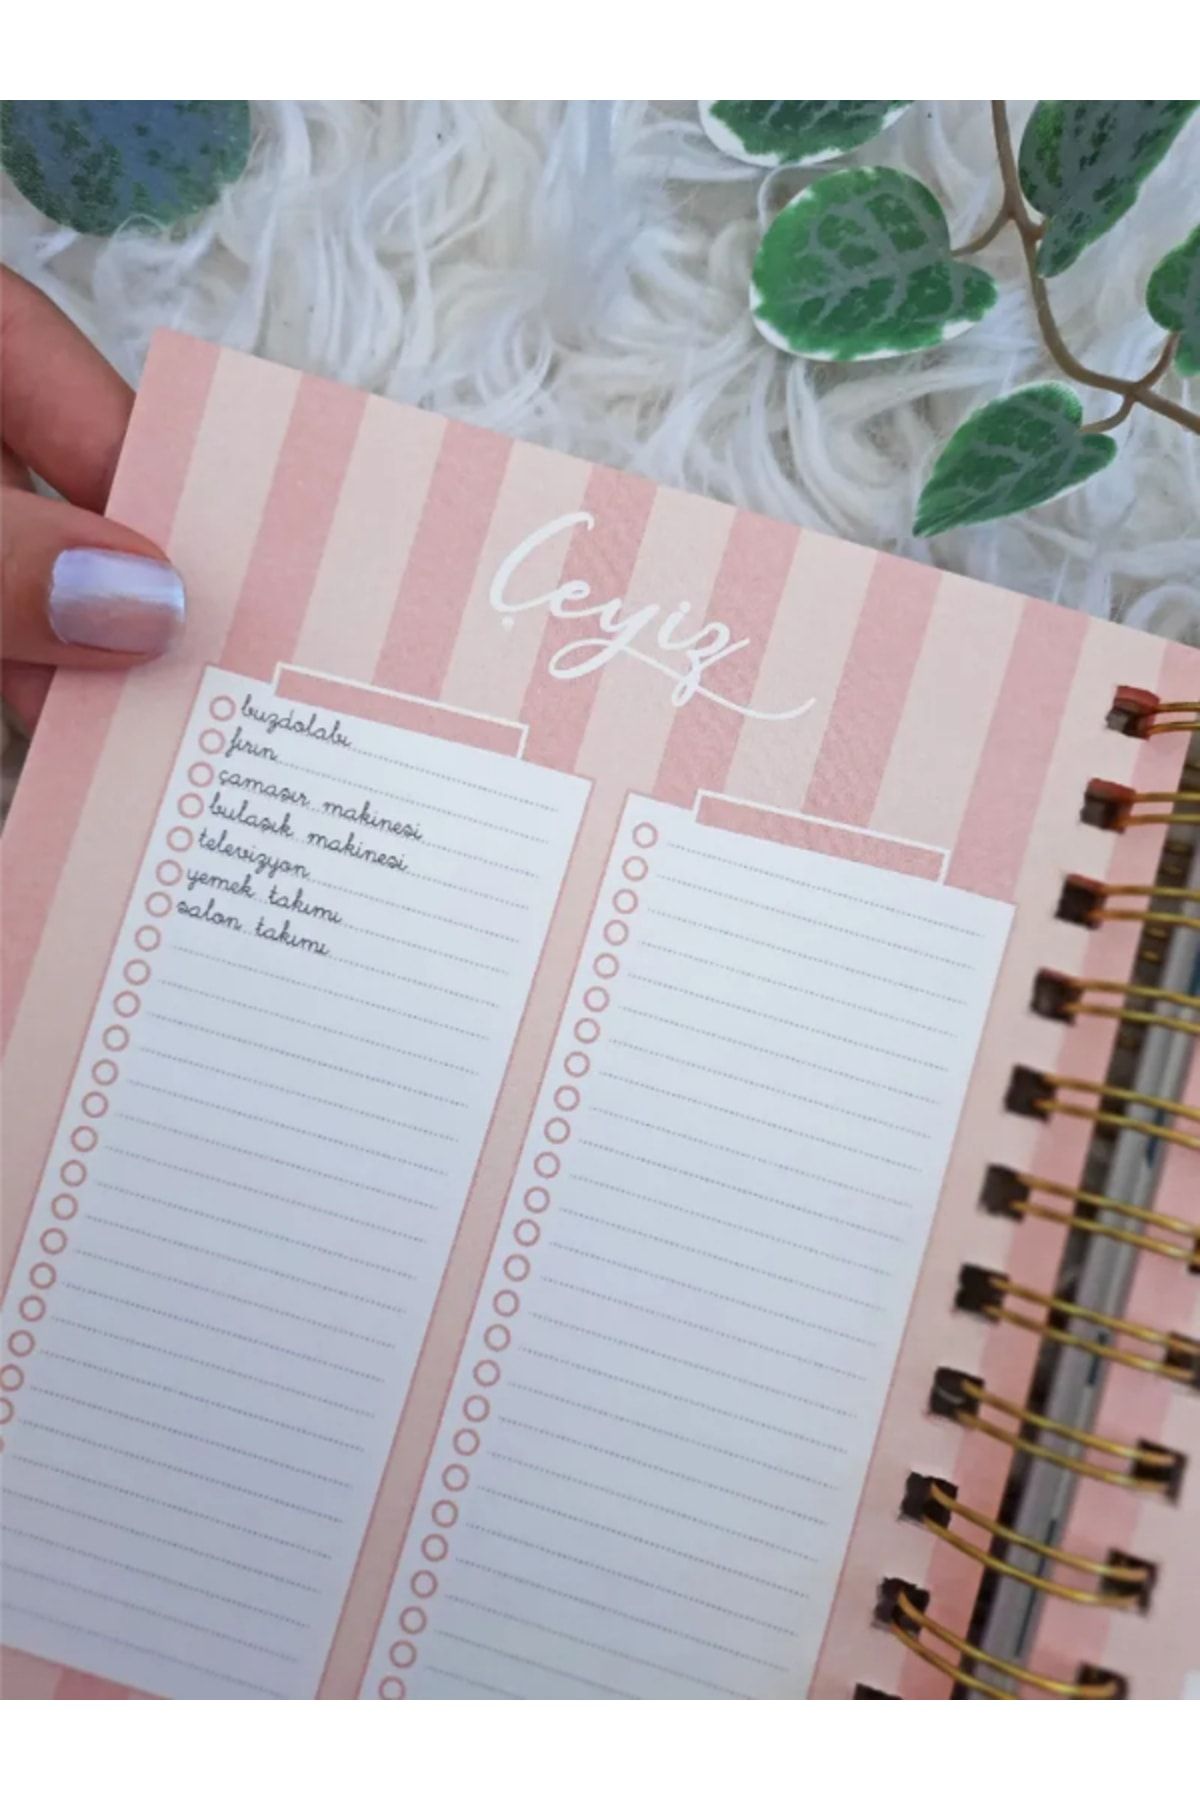 Çeyiz
buzdolabı
fırın
çamaşır makinesi
bulaşık makinesi
televizyon
yemek takımı
salon takımı